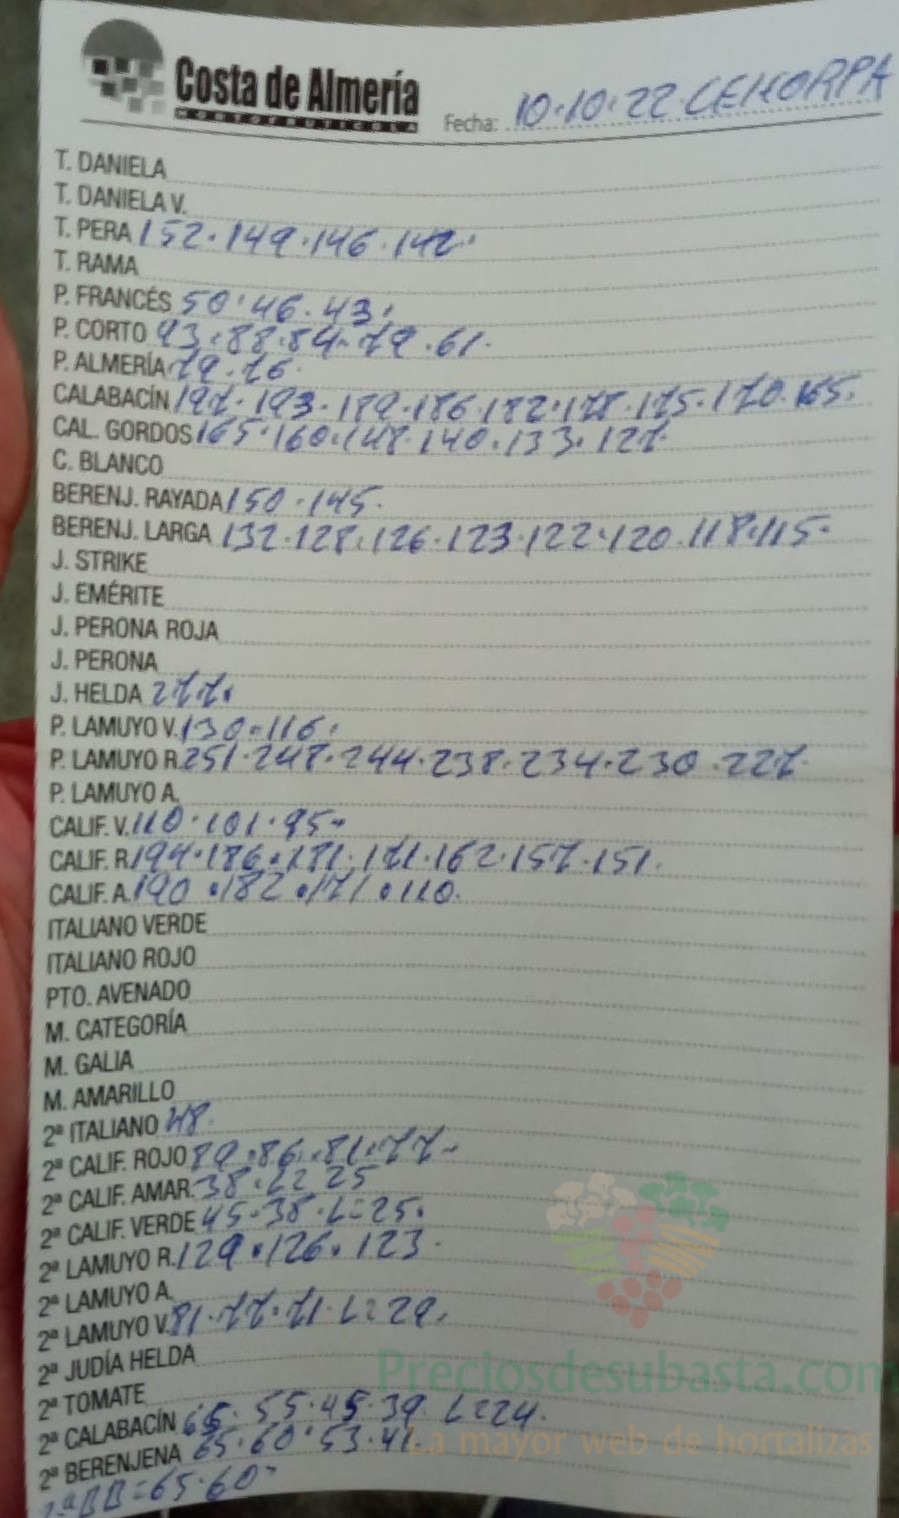 Costa de Almería
HORTOFRUTICOLA
Fecha: 10.10.22. CEHORPA
T. DANIELA
T. DANIELA V.
T. PERA 152.149.146.142.
T. RAMA
P. FRANCÉS 50.46.43.
P. CORTO 93.88.84.79.61.
P. ALMERÍA 79.76.
CALABACÍN 197.193.189.186.182.178.175.170.165.
CAL. GORDOS 165.160.148.140.133.127.
C. BLANCO
BERENJ. RAYADA 150.145.
BERENJ. LARGA 132.128.126.123.122.120.118.115.
J. STRIKE
J. EMÉRITE
J. PERONA ROJA
J. PERONA
J. HELDA 277.
P. LAMUYO V. 130.116.
P. LAMUYO R. 251.248.244.238.234.230.227.
P. LAMUYO A.
CALIF. V. 110.101.95.
CALIF. R. 194.186.181.171.162.157.151.
CALIF. A. 190.182.171.110.
ITALIANO VERDE
ITALIANO ROJO
PTO. AVENADO
M. CATEGORÍA
M. GALIA
M. AMARILLO
2ª ITALIANO 48.
2ª CALIF. ROJO 89.86.81.77.
2ª CALIF. AMAR. 38. 25
2ª CALIF. VERDE 45.38.L=25.
2ª LAMUYO R. 129.126.123.
2ª LAMUYO A.
2ª LAMUYO V. 81.77.71.L=29.
2ª JUDÍA HELDA
2ª TOMATE
2ª CALABACÍN 65.55.45.39.L=24.
2ª BERENJENA 65.60.53.41.
2ªBB=65.60-
Preciosdesubasta.com
La mayor web de hortalizas